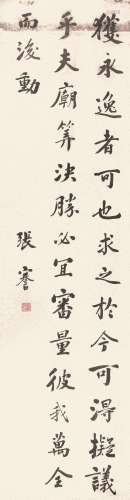 獲永逸者可也求之於今可得擬議
乎夫廟筭決勝必宜審量彼我萬全
而後動
張謇